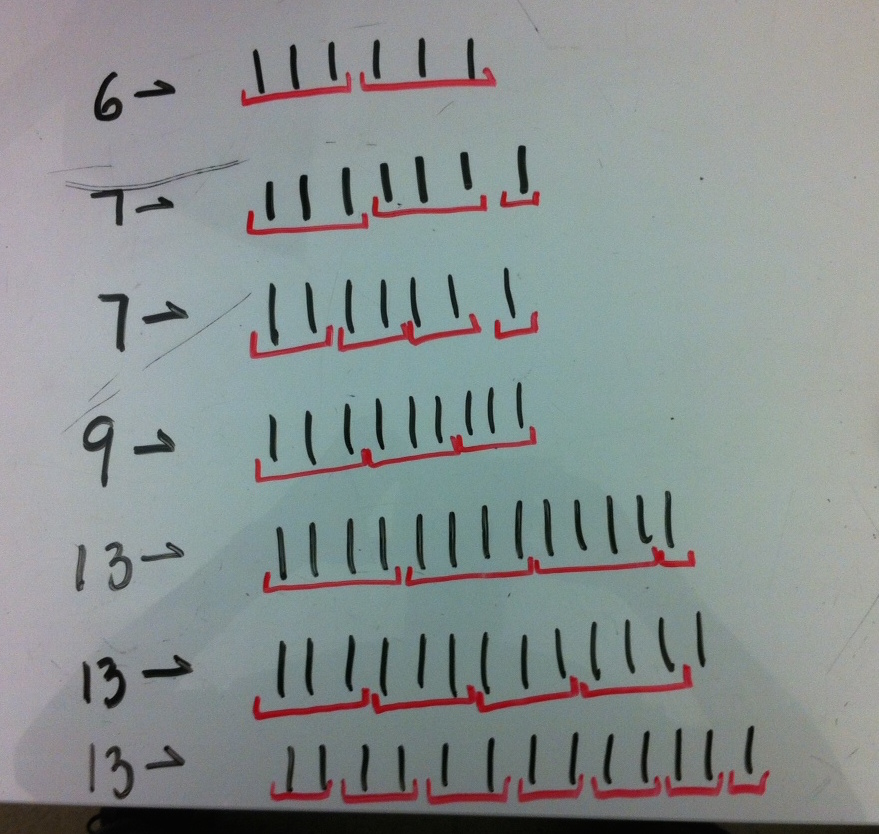 6 → | | | | | |
7 → | | | | | | |
7 → | | | | | | |
9 → | | | | | | | | |
13 → | | | | | | | | | | | | |
13 → | | | | | | | | | | | | |
13 → | | | | | | | | | | | | |